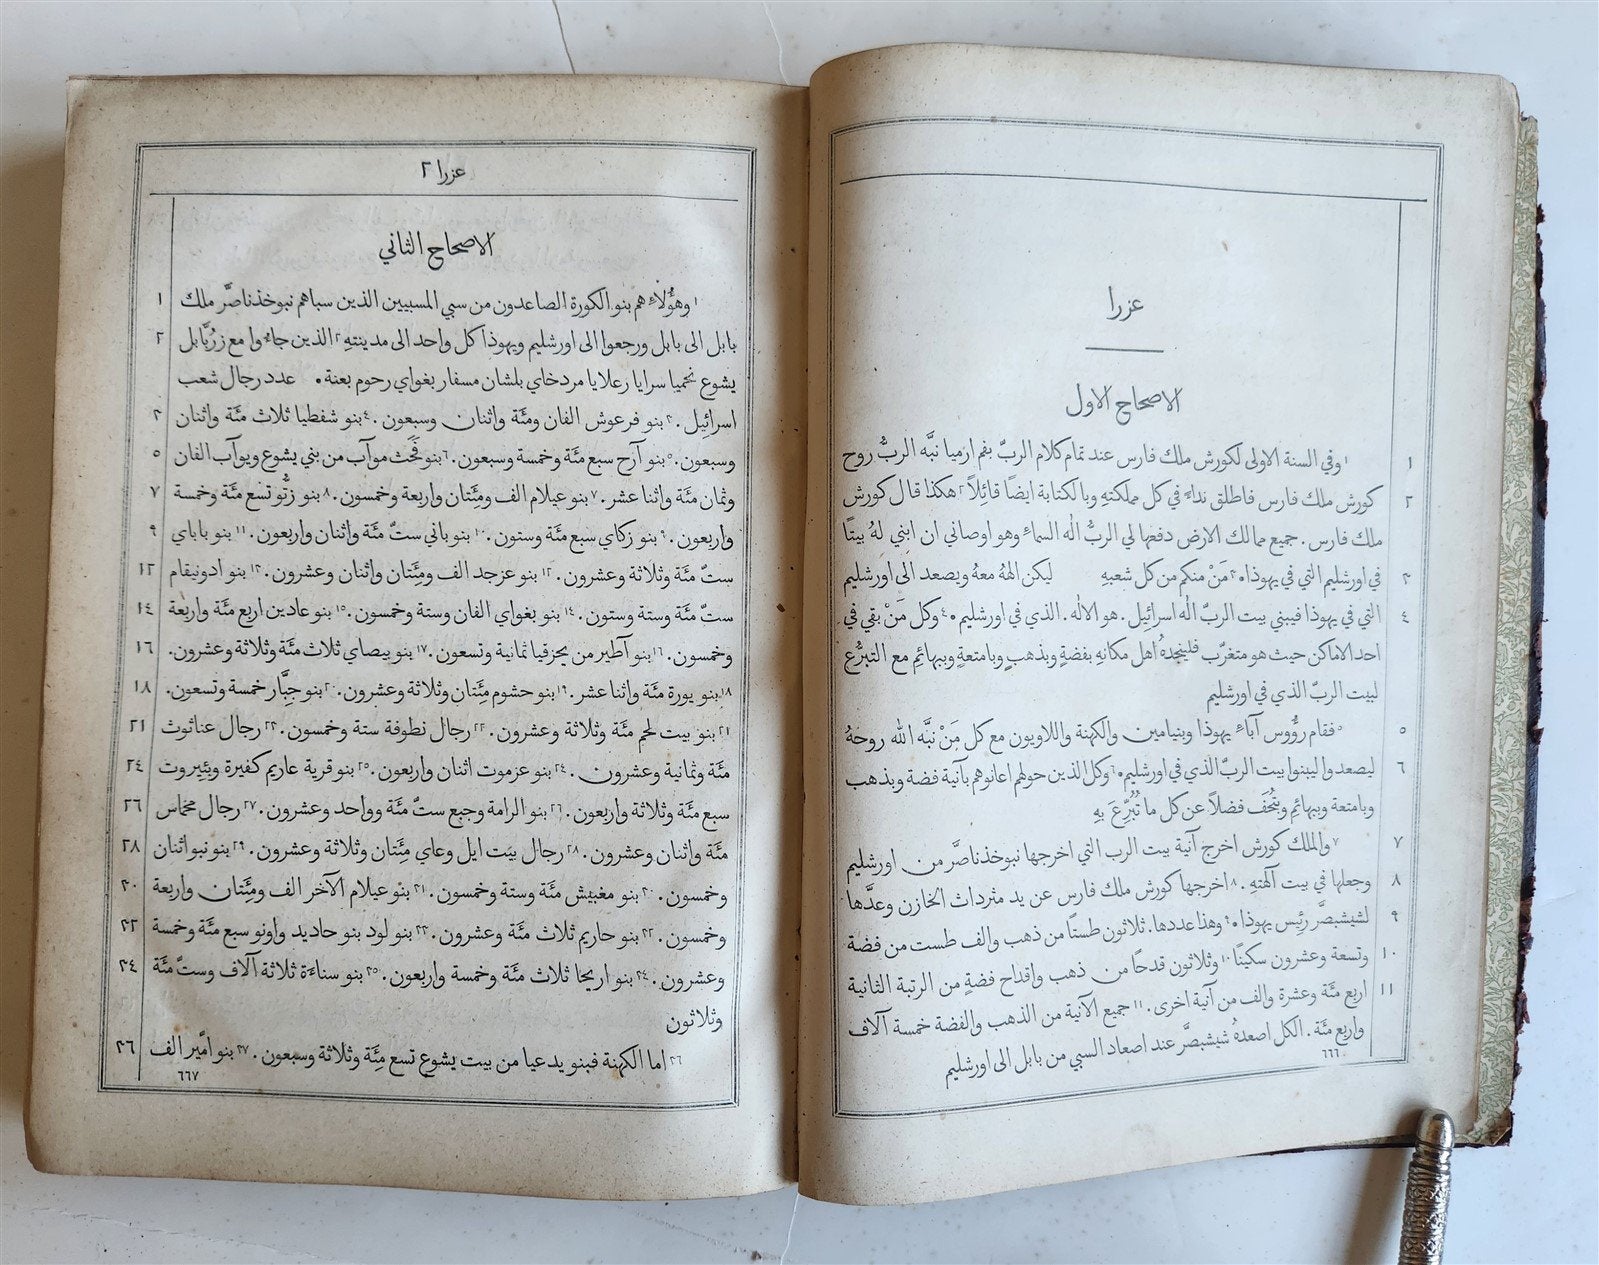 عزرا
الاصحاح الاول
١ ١وفي السنة الاولى لكورش ملك فارس عند تمام كلام الربّ بفم ارميا نبَّه الربُّ روح
٢ كورش ملك فارس فاطلق نداءً في كل مملكتهِ وبالكتابة ايضًا قائِلاً ٢هكذا قال كورش
ملك فارس . جميع ممالك الارض دفعها لي الربُّ الٰه السماءِ وهو اوصاني ان ابني لهُ بيتًا
٣ في اورشليم التي في يهوذا. ٣مَنْ منكم من كل شعبهِ ليكن الٰههُ معهُ ويصعد الى اورشليم
٤ التي في يهوذا فيبني بيت الربّ الٰه اسرائيل . هو الالٰه . الذي في اورشليم . ٤وكل مَنْ بقي في
احد الاماكن حيث هو متغرّب فلينجدهُ اهل مكانهِ بفضةٍ وبذهبٍ وبامتعةٍ وببهائِم مع التبرُّع
لبيت الربّ الذي في اورشليم
٥ ٥فقام رؤُوس آباءِ يهوذا وبنيامين والكهنة واللاويون مع كل مَنْ نبَّه الله روحهُ
٦ ليصعدوا ليبنوا بيت الربّ الذي في اورشليم. ٦وكل الذين حولهم اعانوهم بآنية فضة وبذهب
وبامتعة وببهائِم وبتُحَف فضلاً عن كل ما تُبُرِّعَ بهِ
٧ ٧والملك كورش اخرج آنية بيت الرب التي اخرجها نبوخذناصَّر من اورشليم
٨ وجعلها في بيت آلهتهِ . ٨اخرجها كورش ملك فارس عن يد مثرداث الخازن وعدَّها
٩ لشيشبصَّر رئِيس يهوذا. ٩وهذا عددها. ثلاثون طستًا من ذهب والف طست من فضة
١٠ وتسعة وعشرون سكينًا ١٠وثلاثون قدحًا من ذهب واقداح فضةٍ من الرتبة الثانية
١١ اربع مئَة وعشرة والف من آنية اخرى . ١١جميع الآنية من الذهب والفضة خمسة آلاف
واربع مئَة . الكل اصعدهُ شيشبصَّر عند اصعاد السبي من بابل الى اورشليم
٦٦٦
عزرا ٢
الاصحاح الثاني
١ ١وهؤُلاءِ هم بنو الكورة الصاعدون من سبي المسبيين الذين سباهم نبوخذناصَّر ملك
٢ بابل الى بابل ورجعوا الى اورشليم ويهوذا كل واحد الى مدينتهِ ٢الذين جاءُوا مع زرُبَّابل
يشوع نحميا سرايا رعلايا مردخاي بلشان مسفار بغواي رحوم بعنة. عدد رجال شعب
٣ اسرائِيل . ٣بنو فرعوش الفان ومئَة واثنان وسبعون . ٤بنو شفطيا ثلاث مئَة واثنان
٥ وسبعون. ٥بنو آرح سبع مئَة وخمسة وسبعون. ٦بنو فَحَث موآب من بني يشوع ويوآب الفان
٧ وثمان مئَة واثنا عشر. ٧بنو عيلام الف ومئَتان واربعة وخمسون. ٨بنو زتُّو تسع مئَة وخمسة
٩ واربعون. ٩بنو زكاي سبع مئَة وستون. ١٠بنو باني ستّ مئَة واثنان واربعون. ١١بنو باباي
١٢ ستّ مئَة وثلاثة وعشرون . ١٢بنو عزجد الف ومئَتان واثنان وعشرون. ١٣بنو ادونيقام
١٤ ستّ مئَة وستة وستون . ١٤بنو بغواي الفان وستة وخمسون. ١٥بنو عادين اربع مئَة واربعة
١٦ وخمسون. ١٦بنو آطير من يحزقيا ثمانية وتسعون. ١٧بنو بيصاي ثلاث مئَة وثلاثة وعشرون.
١٨ ١٨بنو يورة مئَة واثنا عشر. ١٩بنو حشوم مئَتان وثلاثة وعشرون. ٢٠بنو جبَّار خمسة وتسعون.
٢١ ٢١بنو بيت لحم مئَة وثلاثة وعشرون. ٢٢رجال نطوفة ستة وخمسون. ٢٣رجال عناثوث
٢٤ مئَة وثمانية وعشرون . ٢٤بنو عزموت اثنان واربعون. ٢٥بنو قرية عاريم كفيرة وبئِيروت
٢٦ سبع مئَة وثلاثة واربعون. ٢٦بنو الرامة وجبع ستّ مئَة وواحد وعشرون. ٢٧رجال مخماس
٢٨ مئَة واثنان وعشرون . ٢٨رجال بيت ايل وعاي مئَتان وثلاثة وعشرون. ٢٩بنو نبو اثنان
٣٠ وخمسون . ٣٠بنو مغبيش مئَة وستة وخمسون. ٣١بنو عيلام الآخر الف ومئَتان واربعة
٣٢ وخمسون . ٣٢بنو حاريم ثلاث مئَة وعشرون. ٣٣بنو لود بنو حاديد واونو سبع مئَة وخمسة
٣٤ وعشرون . ٣٤بنو اريحا ثلاث مئَة وخمسة واربعون. ٣٥بنو سناءَة ثلاثة آلاف وستّ مئَة
وثلاثون
٣٦ ٣٦اما الكهنة فبنو يدعيا من بيت يشوع تسع مئَة وثلاثة وسبعون. ٣٧بنو امّير الف
٦٦٧